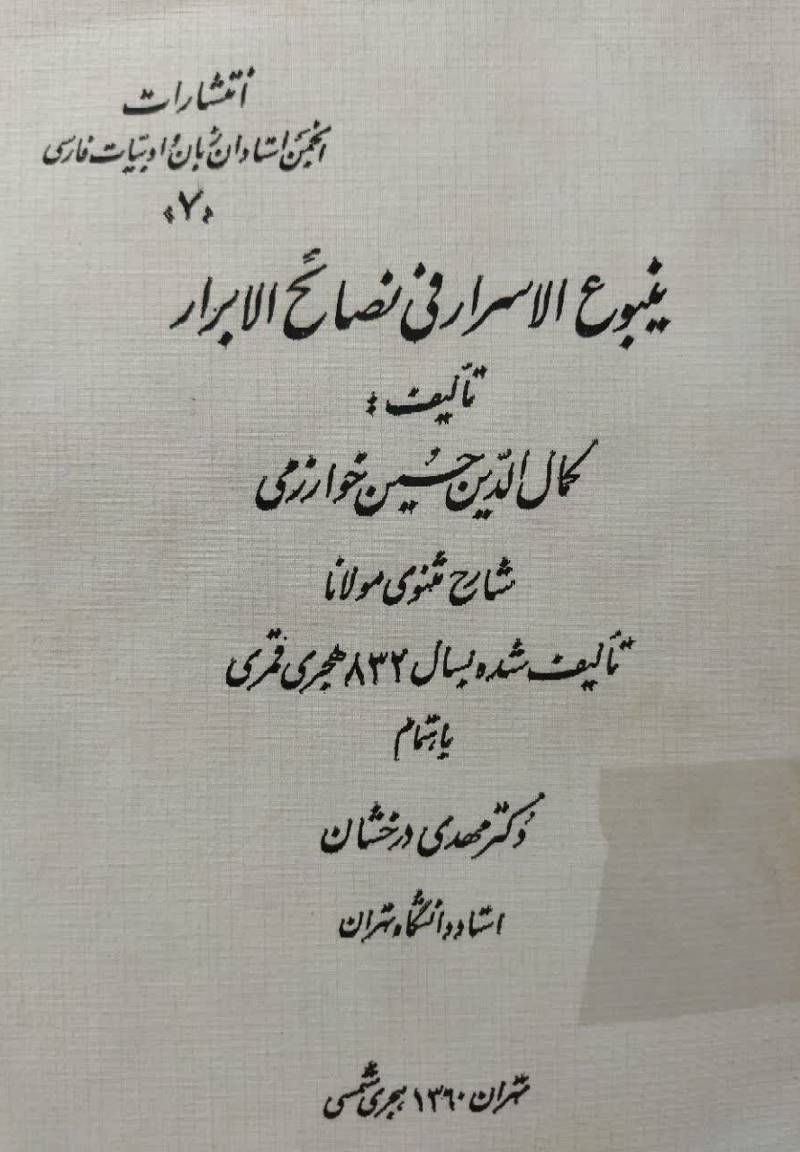 انتشارات
انجمن استادان زبان و ادبیات فارسی
«۷»
ینبوع الاسرار فی نصائح الابرار
تألیف :
کمال الدّین حسین خوارزمی
شارح مثنوی مولانا
تألیف شده بسال ۸۳۲ هجری قمری
باهتمام
دکتر مهدی درخشان
استاد دانشگاه تهران
تهران ۱۳۶۰ هجری شمسی